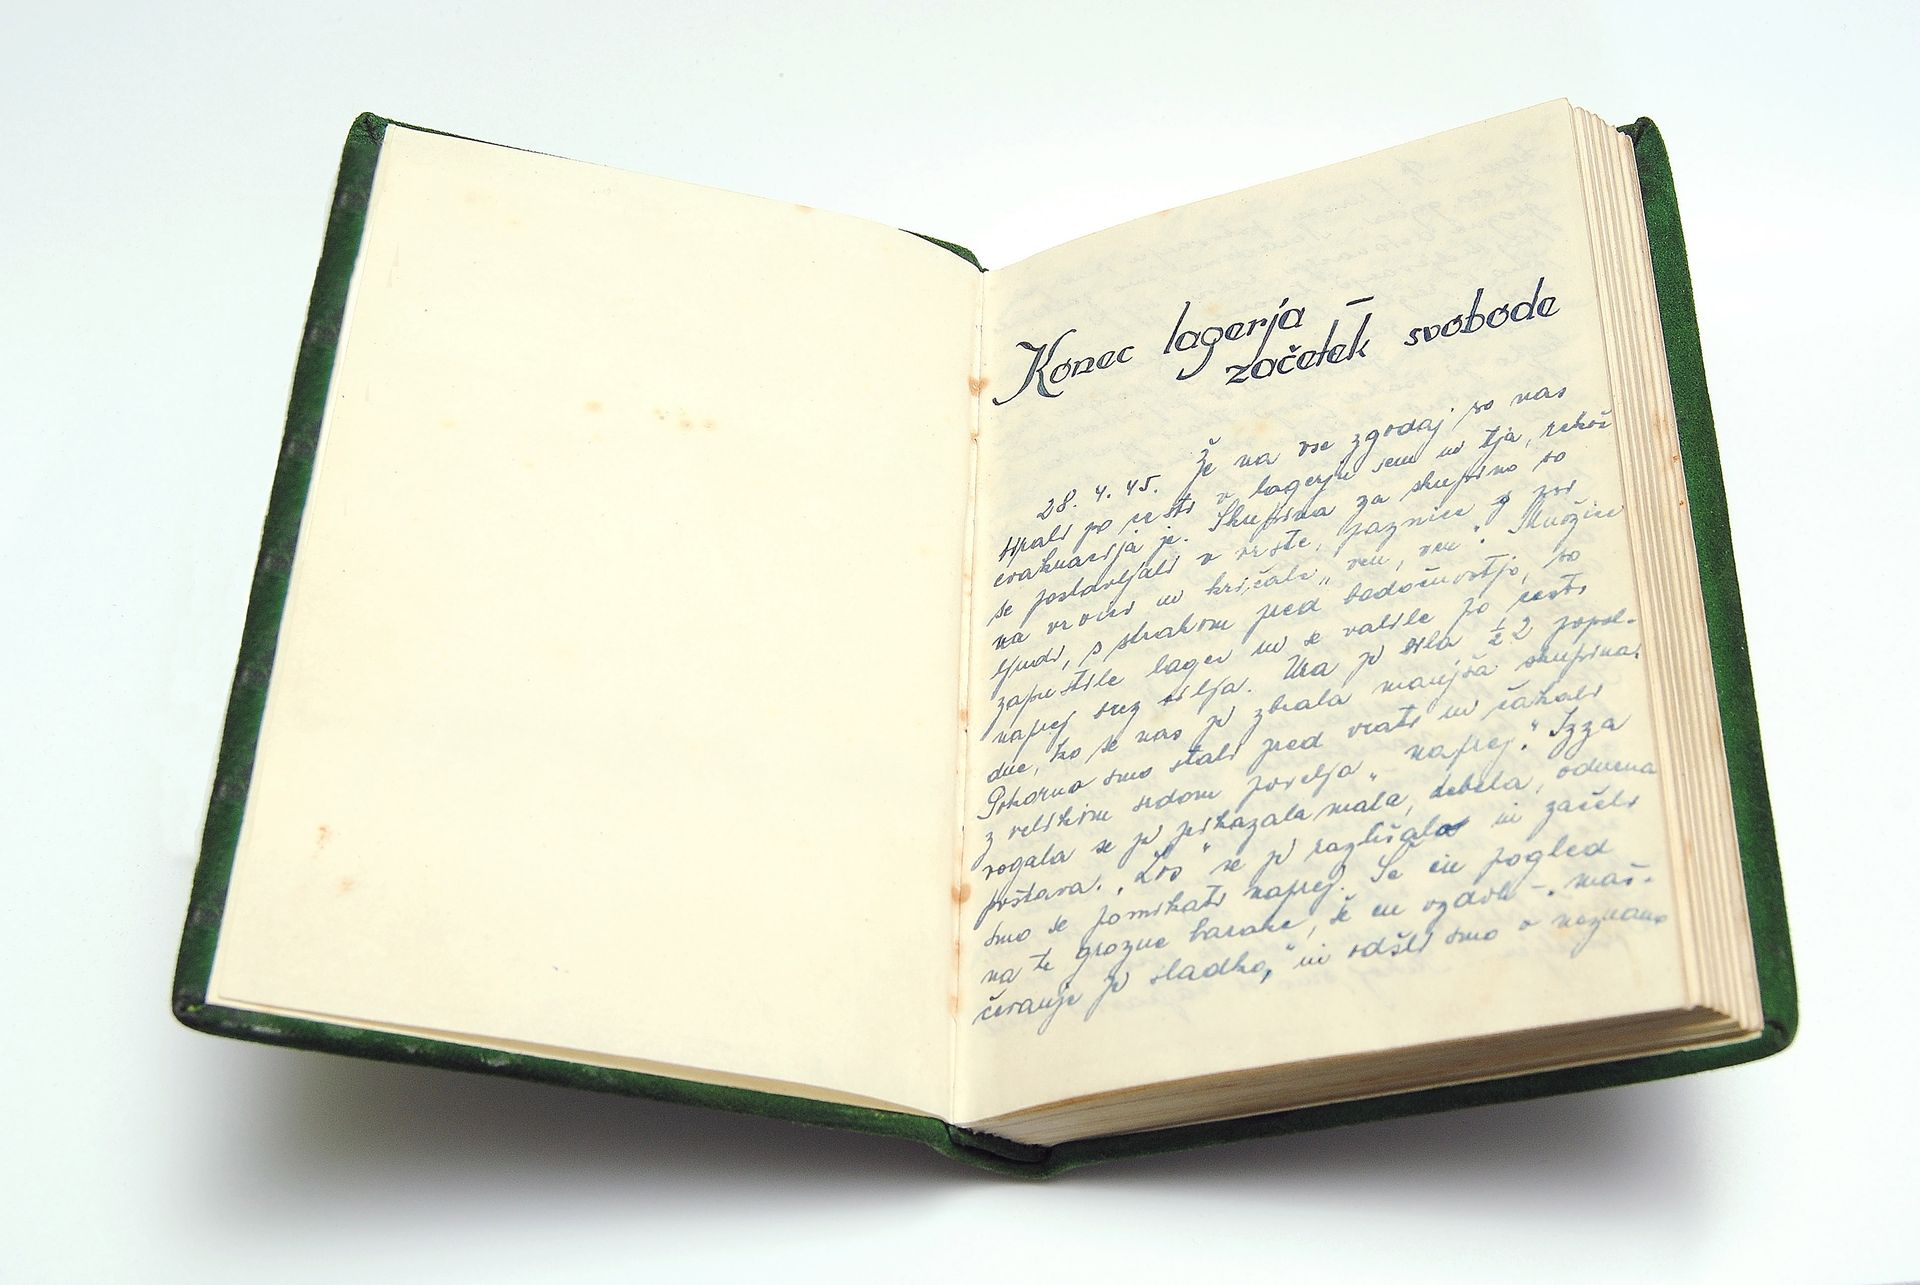 Konec lagerja –
začetek svobode
28. 4. 45. Že na vse zgodaj so nas
po cesti v lagerju sem in tja, rekoč
evakuacija je. Skupina za skupino so
se postavljali v vrste, paznice pri
na vratih in kričale „ven, ven". Množice
ljudi, s strahom pred bodočnostjo, so
zapustile lager in se valile po cesti
naprej brez cilja. Ura je bila ½ 2 popol-
dne, ko se nas je zbrala manjša skupina.
Pokorno smo stali pred vrati in čakali
z velikim srdom povelja „naprej." Izza
vogala se je prikazala mala, debela, odurna
postava. „Los" se je razlišalo in začeli
smo se pomikati naprej. Še en pogled
na te grozne barake, še en vzdih –. „maš-
čevanje je sladko," in odšli smo v neznano